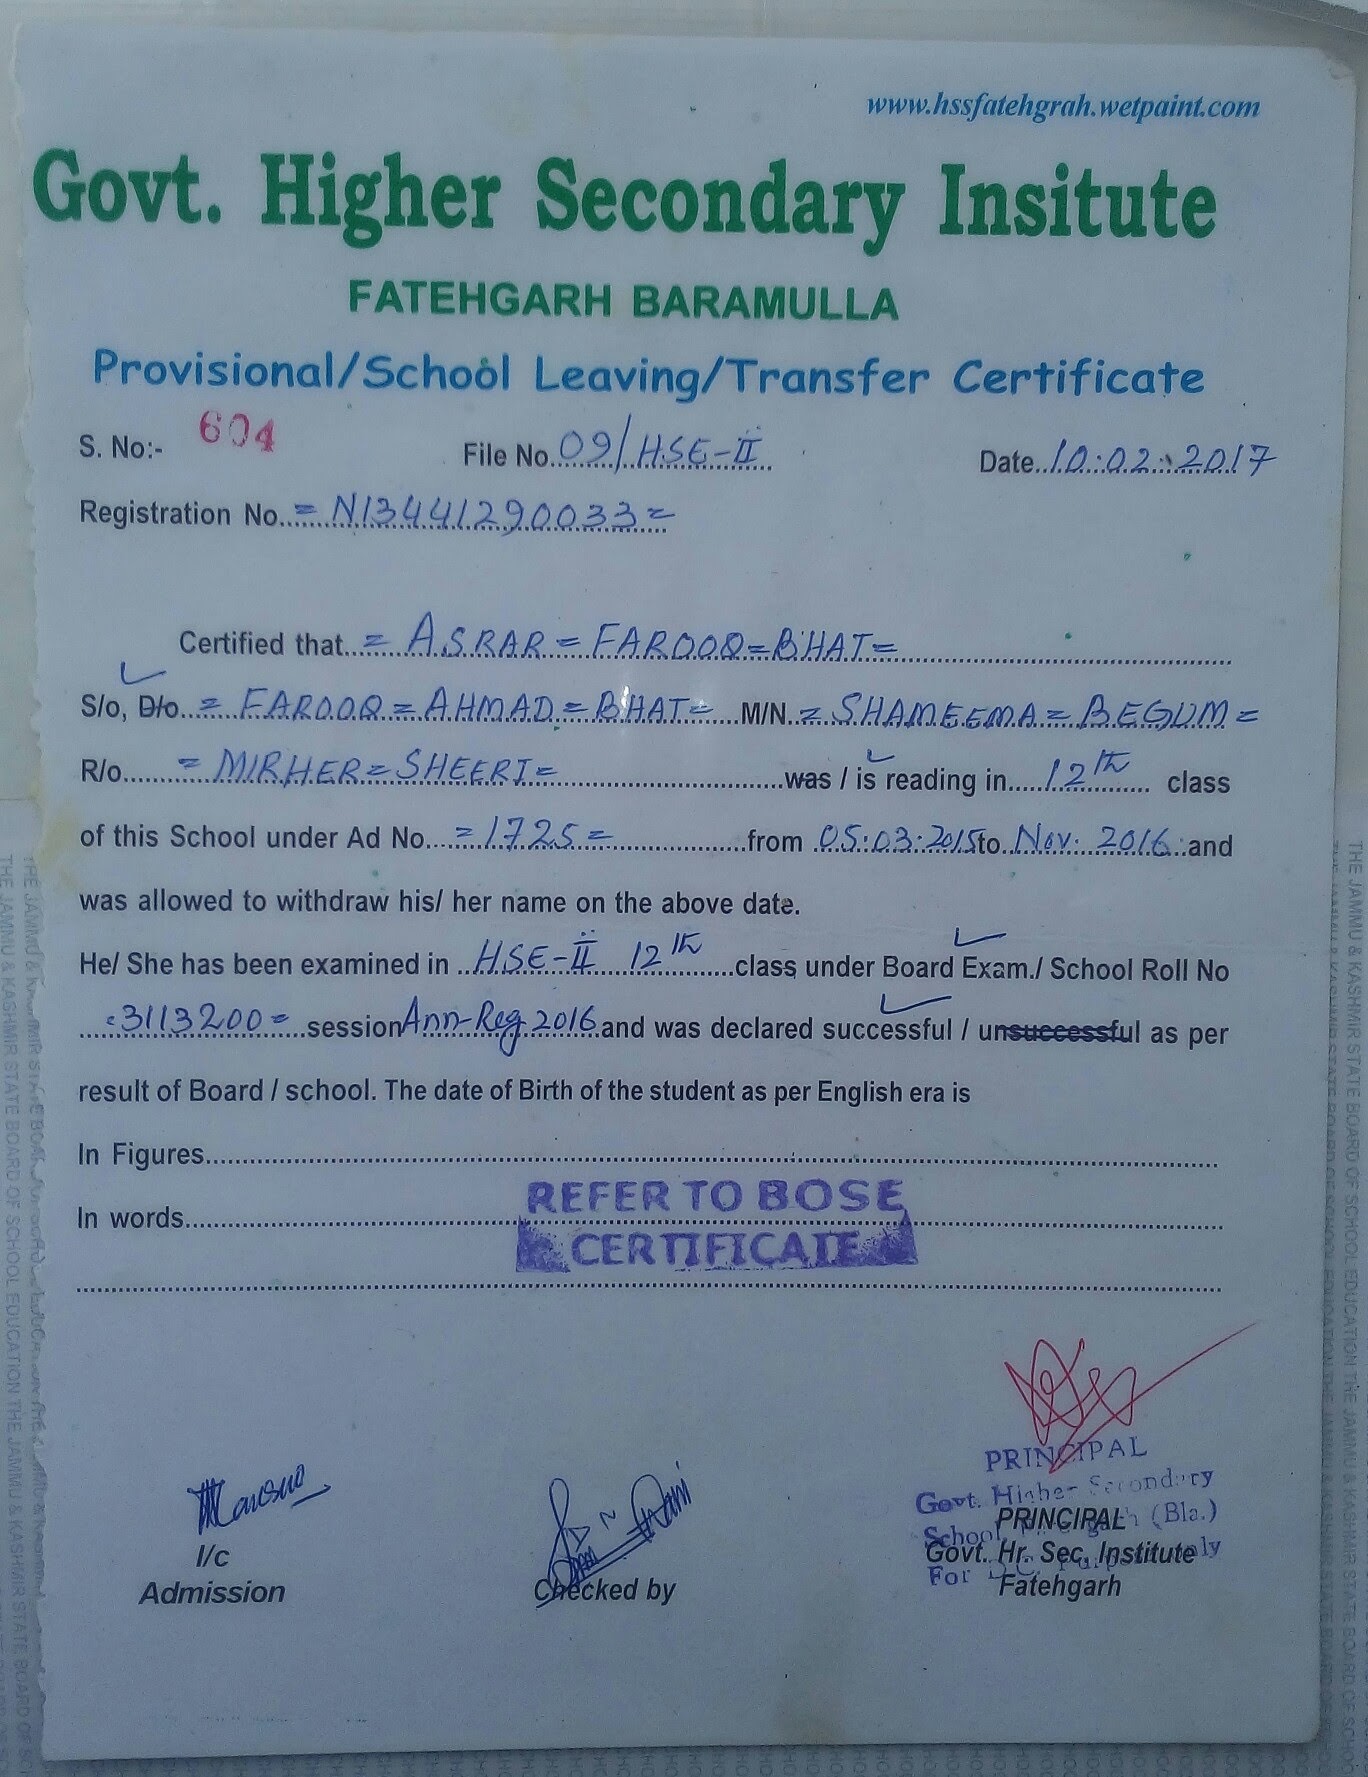 www.hssfatehgrah.wetpaint.com
Govt. Higher Secondary Insitute
FATEHGARH BARAMULLA
Provisional/School Leaving/Transfer Certificate
S. No:- 604 File No. 09/HSE-II Date. 10.02.2017
Registration No. = N13441290033 =
Certified that = ASRAR = FAROOQ = BHAT =
S/o, D/o = FAROOQ = AHMAD = BHAT = M/N = SHAMEEMA = BEGUM =
R/o = MIRHER = SHEERI = was / is reading in 12th class
of this School under Ad No. = 1725 = from 05.03.2015 to Nov. 2016 and
was allowed to withdraw his/ her name on the above date.
He/ She has been examined in HSE-II 12th class under Board Exam./ School Roll No
= 3113200 = session Ann-Reg 2016 and was declared successful / unsuccessful as per
result of Board / school. The date of Birth of the student as per English era is
In Figures
In words
REFER TO BOSE
CERTIFICATE
I/c
Admission
Checked by
PRINCIPAL
Govt. Higher Secondary
School (Bla.)
For only
PRINCIPAL
Govt. Hr. Sec. Institute
Fatehgarh
THE JAMMU & KASHMIR STATE BOARD OF SCHOOL EDUCATION THE JAMMU & KASHMIR STATE BOARD OF